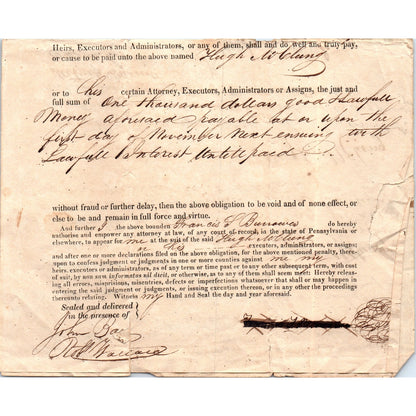 Heirs, Executors and Administrators, or any of them, shall do well and truly pay,
or cause to be paid unto the above named Hugh McClung
or to his certain Attorney, Executors, Administrators or Assigns, the just and
full sum of One thousand dollars good & Lawfull
Money aforesaid payable at or upon the
first day of November next ensuing with
Lawfull Interest Untill paid
without fraud or further delay, then the above obligation to be void and of none effect, or
else to be and remain in full force and virtue.
And further I the above bounden Francis S Burrowes do hereby
authorise and empower any attorney at law, of any court of record, in the state of Pennsylvania or
elsewhere, to appear for me at the suit of the said Hugh McClung
or his executors, administrators, or assigns;
and after one or more declarations filed on the above obligation, for the above mentioned penalty, there-
upon to confess judgment or judgments in one or more counties against me my
heirs, executors or administrators, as of any term or time past or to any other subsequent term, with cost
of suit, by non sum informatus nil dicit, or otherwise, as to you or any of them shall seem meet: Hereby releas-
ing all errors, misprisions, misnomers, defects or imperfections whatsoever that shall or may happen in
entering the said judgment or judgments, or issuing execution thereon, or any other of the proceedings
thereunto relating. Witness my Hand and Seal the day and year aforesaid.
Sealed and delivered
in the presence of
John
Robt Wallace